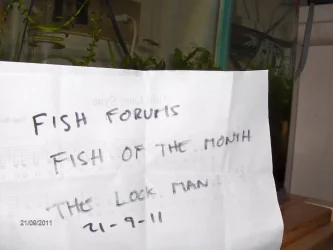 FISH FORUMS
FISH OF THE MONTH
THE LOCK MAN
21-9-11
21/09/2011